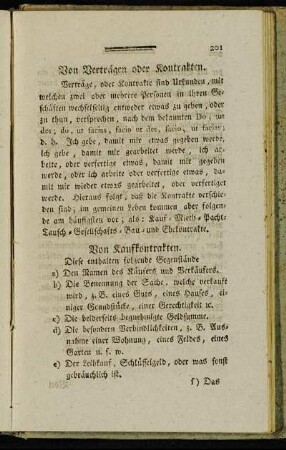 201
Von Verträgen oder Kontrakten.
Verträge, oder Kontrakte sind Urkunden, mit
welchen zwei oder mehrere Personen in ihren Ge-
schäften wechselseitig entweder etwas zu geben, oder
zu thun, versprechen, nach dem bekannten Do, ut
des; do, ut facias, facio ut des, facio, ut facias;
d. h. Ich gebe, damit mir etwas gegeben werde,
ich gebe, damit mir gearbeitet werde, ich ar-
beite, oder verfertige etwas, damit mir gegeben
werde, oder ich arbeite oder verfertige etwas, da-
mit mir wieder etwas gearbeitet, oder verfertiget
werde. Hieraus folgt, daß die Kontrakte verschie-
den sind; im gemeinen Leben kommen aber folgen-
de am häufigsten vor; als: Kauf- Mieth- Pacht-
Tausch- Gesellschafts- Bau- und Ehekontrakte.
Von Kaufkontrakten.
Diese enthalten folgende Gegenstände
a) Den Namen des Käufers und Verkäufers.
b) Die Benennung der Sache, welche verkauft
wird, z. B. eines Guts, eines Hauses, ei-
niger Grundstücke, einer Gerechtigkeit ꝛc.
c) Die beiderseits begnehmigte Geldsumme.
d) Die besondern Verbindlichkeiten, z. B. Aus-
nahme einer Wohnung, eines Feldes, eines
Garten u. s. w.
e) Der Leihkauf, Schlüsselgeld, oder was sonst
gebräuchlich ist.
f) Das